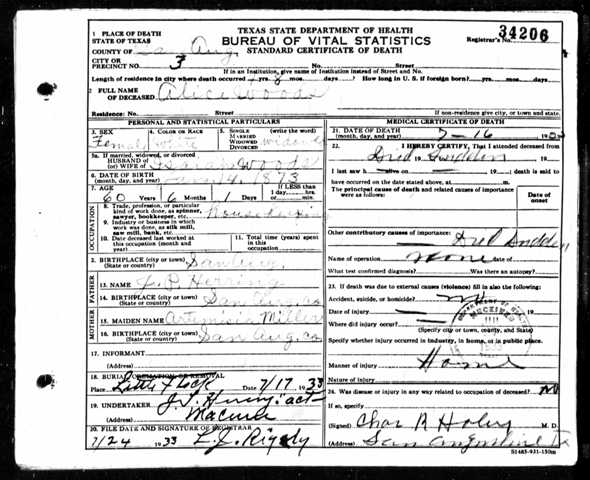 TEXAS STATE DEPARTMENT OF HEALTH
BUREAU OF VITAL STATISTICS
STANDARD CERTIFICATE OF DEATH
34206
Registrar's No.
1 PLACE OF DEATH
STATE OF TEXAS
COUNTY OF San Aug.
CITY OR
PRECINCT NO. 3 No. Street
If in an institution, give name of institution instead of Street and No.
Length of residence in city where death occurred yrs. mos. days. How long in U. S. if foreign born? yrs. mos. days.
2 FULL NAME
OF DECEASED Alice Woods
Residence: No. Street If non-residence give city, or town and state.
PERSONAL AND STATISTICAL PARTICULARS
3. SEX
Female
4. COLOR OR RACE
White
5. SINGLE
MARRIED
WIDOWED
DIVORCED
(write the word)
widowed
5a. If married, widowed, or divorced
HUSBAND OF
(or) WIFE OF Woods
6. DATE OF BIRTH
(month, day, year) 14, 1873
7. AGE
60 Years 6 Months 1 Days
If LESS than
1 day, hrs.
or min.
OCCUPATION
8. Trade, profession, or particular
kind of work done, as spinner,
sawyer, bookkeeper, etc. Housekeeping
9. Industry or business in which
work was done, as silk mill,
saw mill, bank, etc.
10. Date deceased last worked at
this occupation (month and
year)
11. Total time (years)
spent in this
occupation
12. BIRTHPLACE (city or town)
(State or country) San Aug.
FATHER
13. NAME
14. BIRTHPLACE (city or town)
(State or country) San Aug, co
MOTHER
15. MAIDEN NAME Miller
16. BIRTHPLACE (city or town)
(State or country) San Aug, co
17. INFORMANT
(Address)
18. BURIAL, CREMATION OR REMOVAL
Place Little Flock Date 7/17 1933
19. UNDERTAKER
(Address) Macune
20. FILE DATE AND SIGNATURE OF REGISTRAR
7/24 1933
MEDICAL CERTIFICATE OF DEATH
21. DATE OF DEATH
(month, day, year) 7-16 1933
22. I HEREBY CERTIFY, That I attended deceased from
Died Sudden
I last saw h alive on 19 ; death is said
to have occurred on the date stated above, at m.
The principal cause of death and related causes of importance
were as follows:
Date of
onset
Other contributory causes of importance: Died Sudden
Name of operation None date of
What test confirmed diagnosis? Was there an autopsy?
23. If death was due to external causes (violence) fill in also the following:
Accident, suicide, or homicide?
Date of injury 19
Where did injury occur?
(Specify city or town, county, and State)
Specify whether injury occurred in Industry, in home, or in public place.
Manner of injury Home
Nature of injury
24. Was disease or injury in any way related to occupation of deceased? No
If so, specify
(Signed) Chas R M. D.
(Address) San Augustine Tx